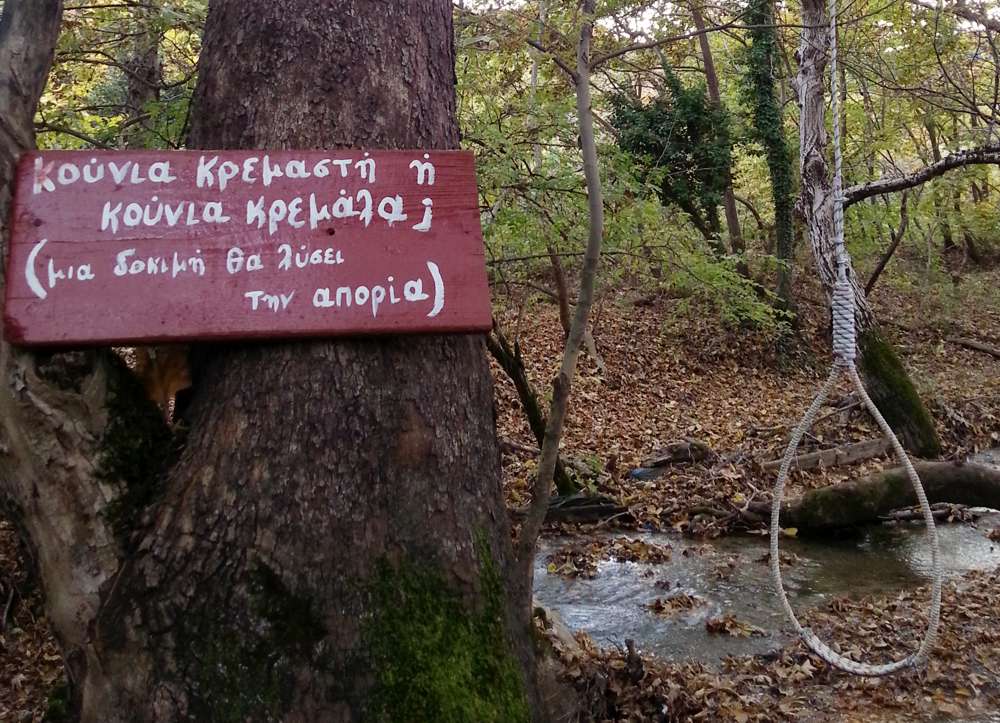 κούνια κρεμαστή ή
κούνια κρεμάλα;
(μια δοκιμή θα λύσει
την απορία)